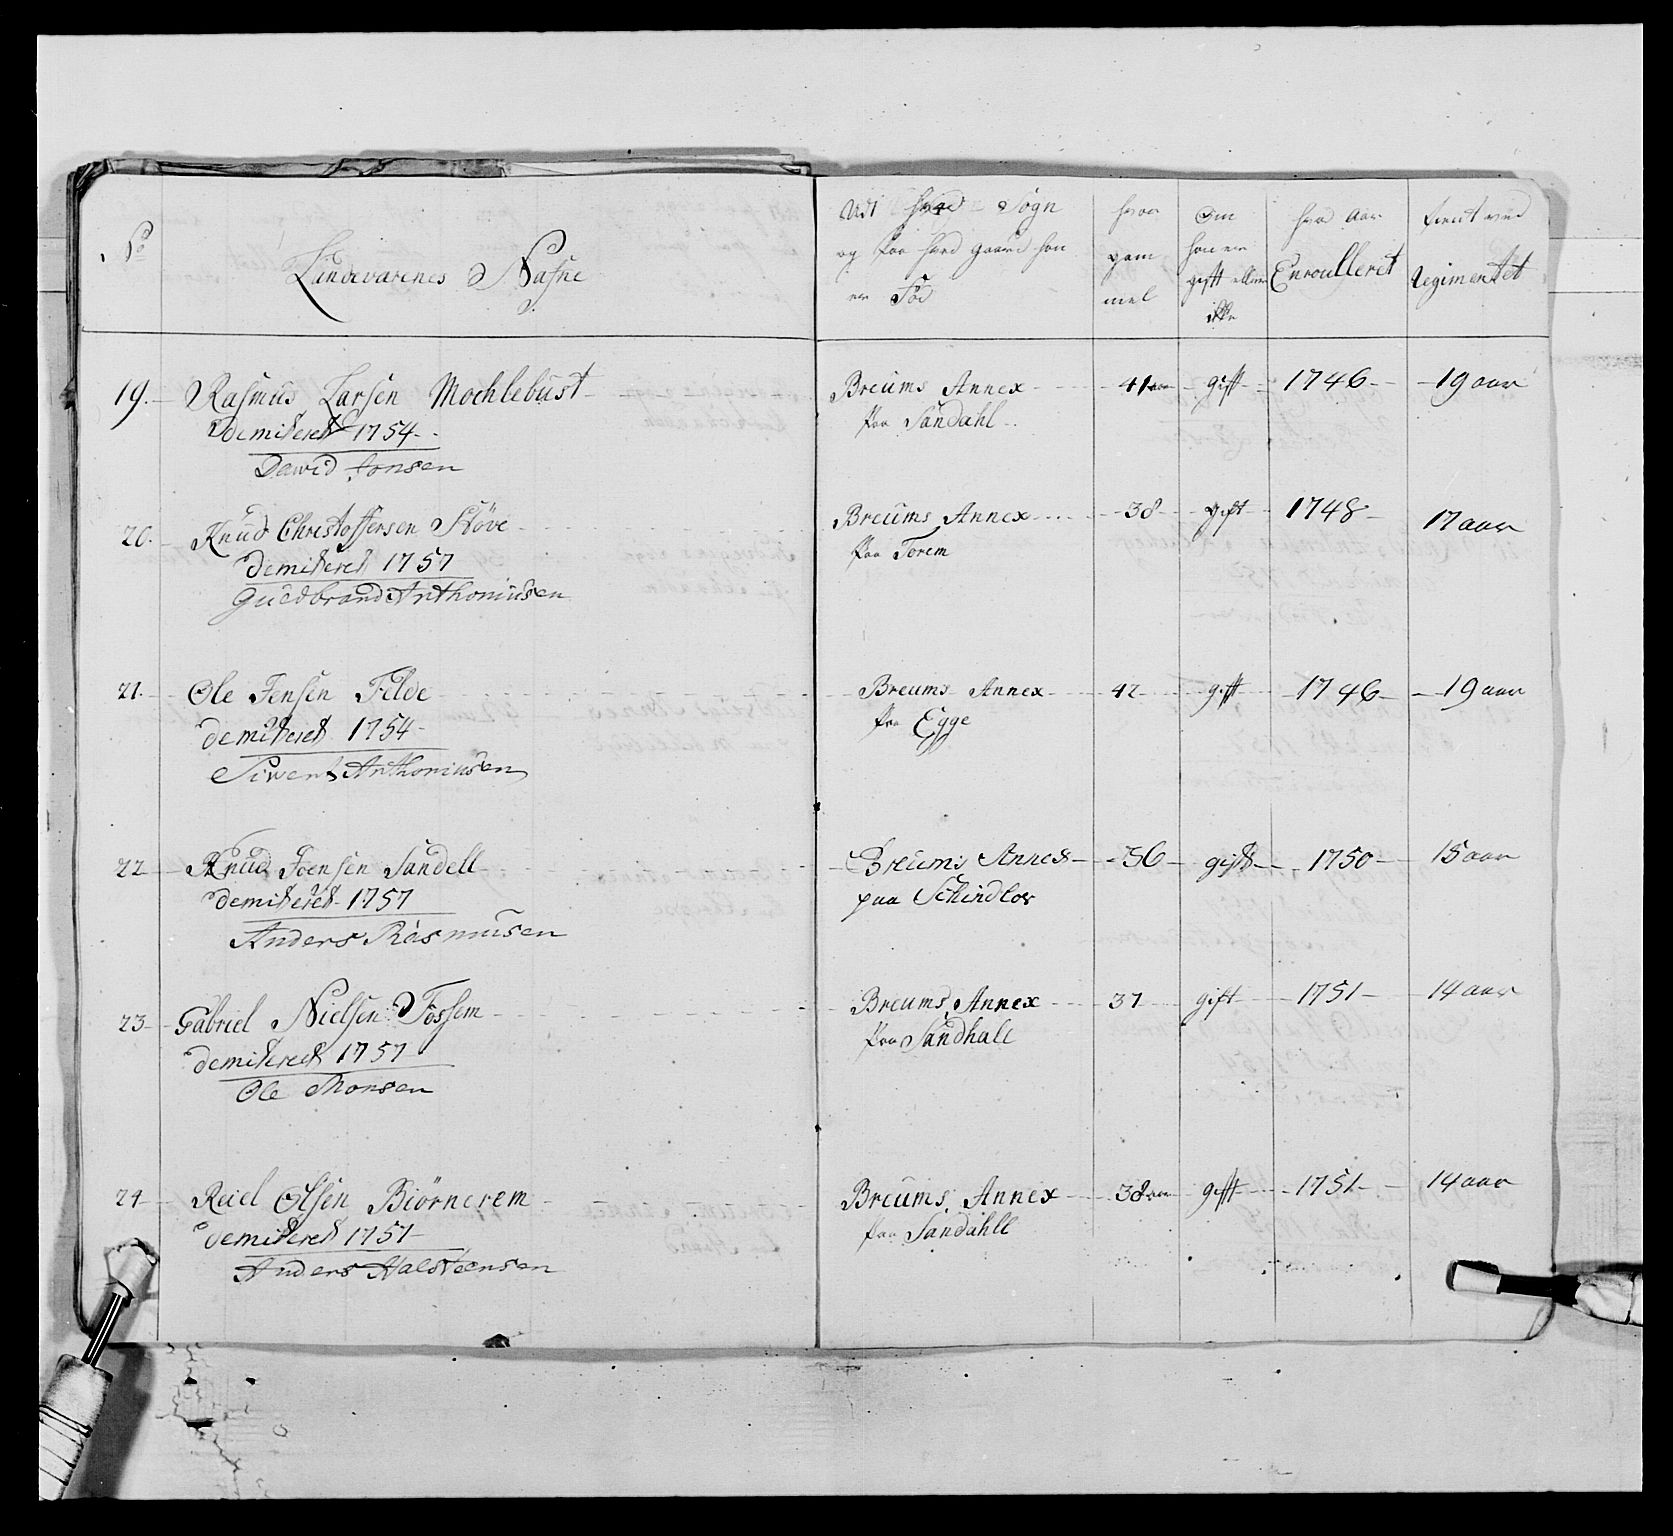 No
Landeværnes Nafne
Udi hvad Sogn
og Paa hvad gaard han
er Fød
hvor
gam
mel
Om
han er
gift eller
ikke
hvad Aar
Enroulleret
tient ved
Regimentet
19. Rasmus Larsen Mochlebust Breums Annex 41 aar gift 1746 19 aar
demiteret 1754 Paa Sandahl
David Jonsen
20. Knud Christoffersen Støve Breums Annex 38 gift 1748 17 aar
demiteret 1757 Paa Torem
Guldbrand Anthoniusen
21. Ole Jensen Felde Breums Annex 42 gift 1746 19 aar
demiteret 1754 Paa Egge
Sivert Anthoniusen
22 Knud Joensen Sandell Breums Annex 36 gift 1750 15 aar
demiteret 1757 paa Schindlov
Anders Rasmusen
23 Gabriel Nielsen Fossem Breums Annex 37 gift 1751 14 aar
demiteret 1757 Paa Sandhall
Ole Monsen
24 Reiel Olsen Biörnerem Breums Annex 38 aar gift 1751 14 aar
demiteret 1757 paa Sandahll
Anders Halsteensen